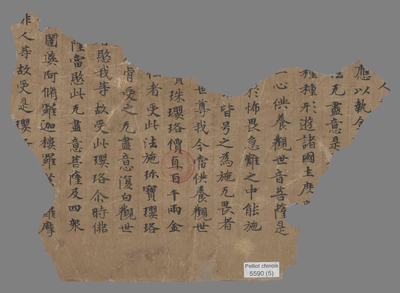 人
應以執金
法无盡意是
種種形遊諸國土度
一心供養觀世音菩薩是
於怖畏急難之中能施
皆号之為施无畏者
世尊我今當供養觀世
珠瓔珞價直百千兩金
仁者受此法施珎寶瓔珞
肯受之无盡意復白觀世
愍我等故受此瓔珞尒時佛
薩當愍此无盡意菩薩及四衆
闥婆阿脩羅迦樓羅 羅摩
非人等故受是瓔
Pelliot chinois
5590 (5)